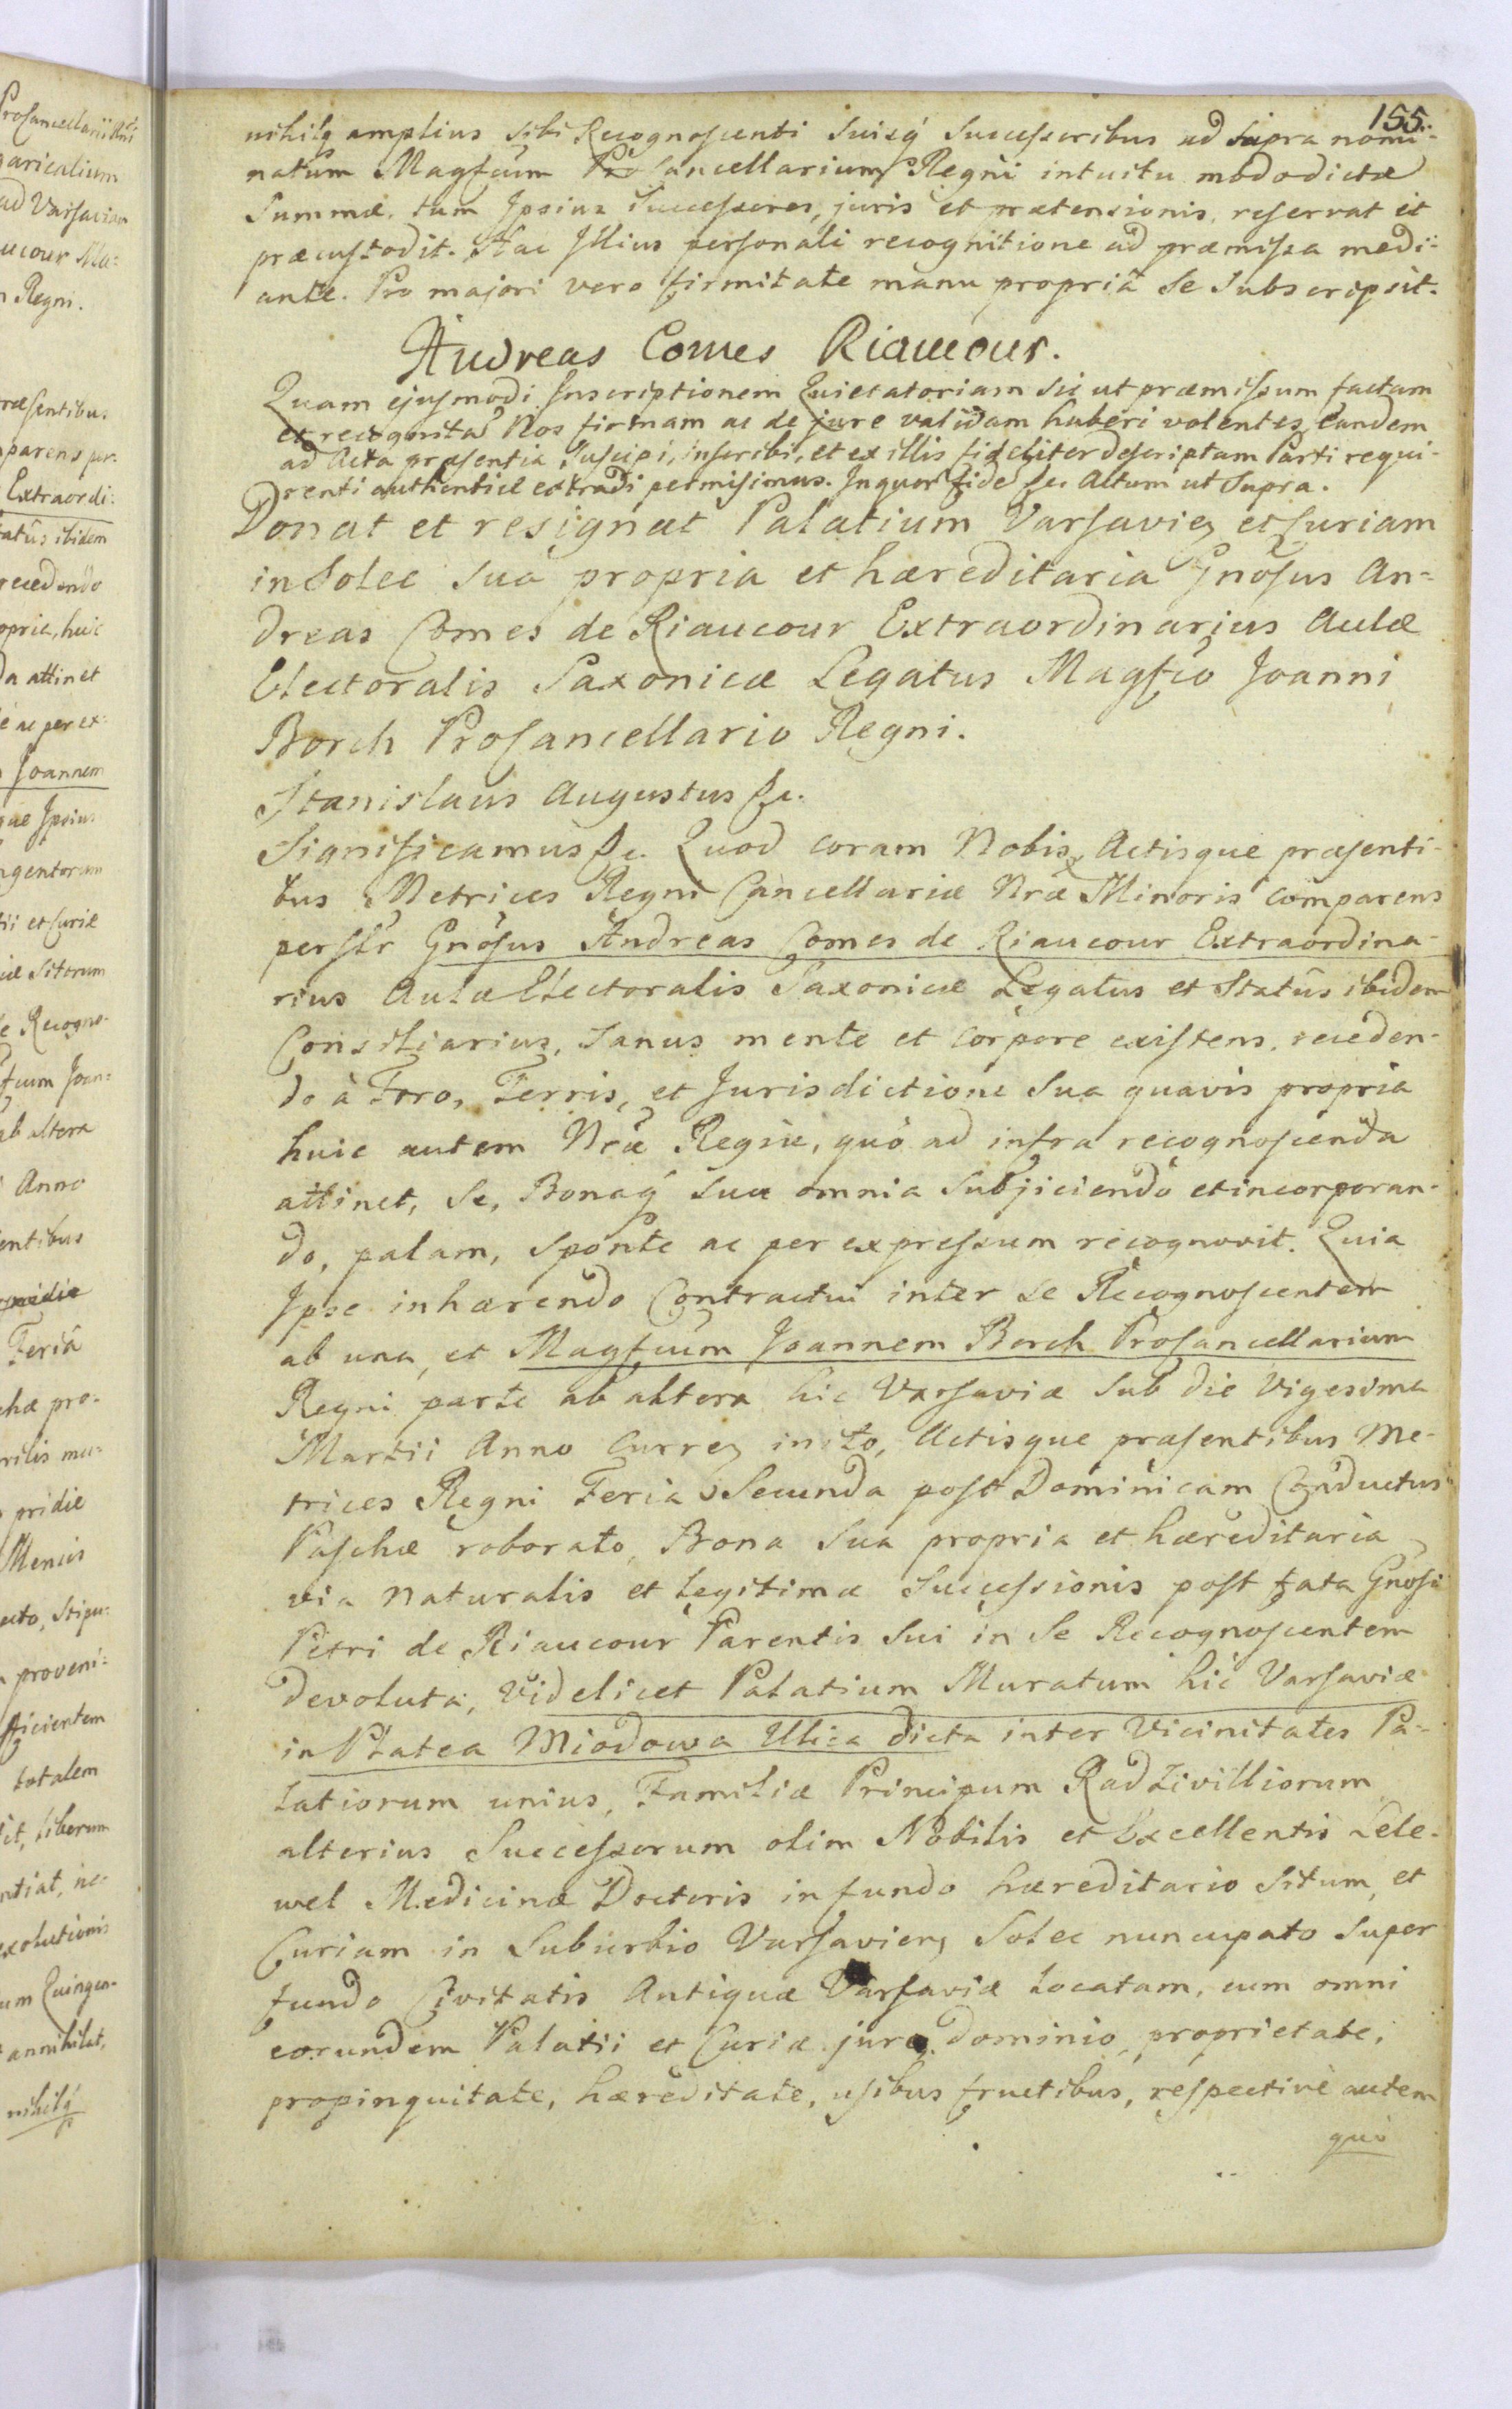 155.
nihilq amplius sibi Recognoscenti suisq́ Successoribus ad supra nomi-
natum Magfcum Procancellarium Regni intuitu mododictæ
Summæ, tum Ipsius Successores, juris et prætensionis, reservat et
præcustodit. Hac Illius personali recognitione ad præmissa medi-
ante. Pro majori vero firmitate manu propriâ se subscripsit.
Andreas Comes Riaucour.
Quam ejusmodi Inscriptionem Quietatoriam sic ut præmissum factam
et recognitã Nos firmam ac de jure validam haberi volentes, Eandem
ad Acta præsentia suscipi, inscribi, et ex illis fideliter descriptam Parti requi-
renti authenticè extradi permisimus. In quor fide &c. Actum ut supra.
Donat et resignat Palatium Varsavien et Curiam
in Solec sua propria et hæreditaria Gnosus An-
dreas Comes de Riaucour Extraordinarius Aulæ
Electoralis Saxonicæ Legatus Magfco Joanni
Borch Procancellario Regni.
Stanislaus Augustus &c.
Significamus &c. Quod coram Nobis, Actisque præsenti-
bus Metrices Regni Cancellariæ Nræ Minoris comparens
persłr Gnosus Andreas Comes de Riaucour Extraordina-
rius Aulæ Electoralis Saxonicæ Legatus et Statûs ibidem
Consiliarius, sanus mente et corpore existens, receden-
do à Foro, Terris, et Jurisdictione sua quavis propria
huic autem Nræ Regiæ, quò ad infra recognoscenda
attinet, se, Bonaq́ sua omnia subjiciendo et incorporan-
do, palam, sponte ac per expressum recognovit. Quia
Ipse inhærendo Contractui inter se Recognoscentem
ab una, et Magfcum Joannem Borch Procancellarium
Regni parte ab altera hic Varsaviæ sub die Vigesima
Martii Anno Curren inito, Actisque præsentibus Me-
trices Regni Feria Secunda post Dominicam Conductus
Paschæ roborato, Bona sua propria et hæreditaria
via naturalis et legitimæ successionis post fata Gnosi
Petri de Riaucour Parentis sui in se Recognoscentem
devoluta, videlicet Palatium Muratum hic Varsaviæ
in Platea Miodowa Ulica dicta inter Vicinitates Pa-
latiorum unius, Familiæ Principum Radzivilliorum
alterius Successorum olim Nobilis et Excellentis Lele-
wel Medicinæ Doctoris in fundo hæreditario situm, et
Curiam in Suburbio Varsavien Solec nuncupato super
fundo Civitatis Antiquæ Varsaviæ locatam, cum omni
eorundem Palatii et Curiæ jure, dominio, proprietate,
propinquitate, hæreditate, usibus fructibus, respectivè autem
quò